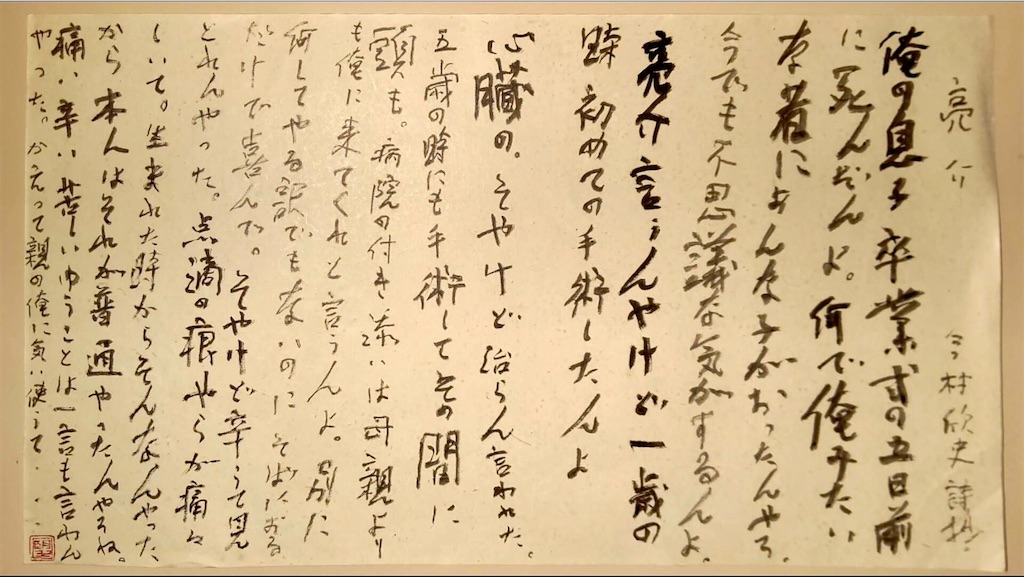 亮介
今村欣史 詩抄
俺の息子 卒業式の五日前
に死んだんよ。何で俺みたい
な者にあんな子がおったんやろ
今でも不思議な気がするんよ。
亮介言うんやけど一歳の
時 初めての手術したんよ
心臓の。そやけど治らん言われた。
五歳の時にも手術してその間に
頭も。病院の付き添いは母親より
も俺に来てくれと言うんよ。別に
何してやる訳でもないのにそばにおる
だけで喜んで。そやけど辛うて見
とれんやった。点滴の痕やらが痛々
しいて。生まれた時からそんなんやった
から本人はそれが普通やったんやろね。
痛い辛い苦しいゆうことは一言も言わん
やった。かえって親の俺に気い使うて・・・